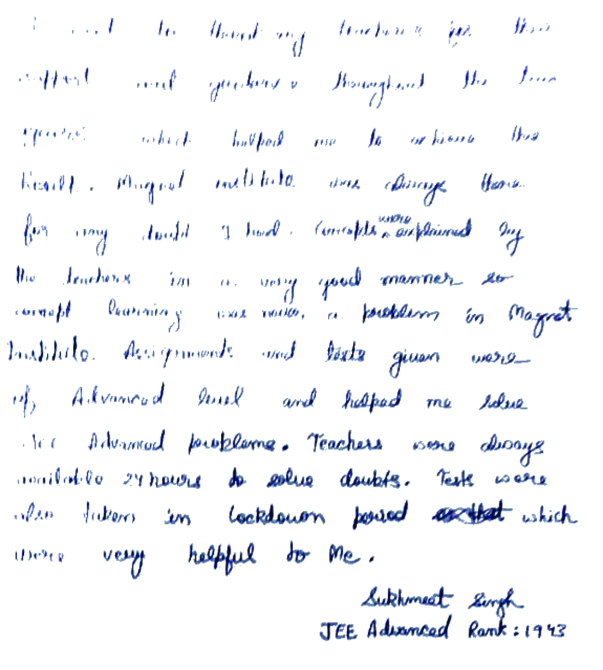 I want to thank my teachers for their
support and guidance throughout the two
years which helped me to achieve this
Result. Magnet institute was always there
for any doubt I had. Concepts were explained by
the teachers in a very good manner so
concept learning was never a problem in Magnet
Institute. Assignments and tests given were
of Advanced level and helped me solve
JEE Advanced problems. Teachers were always
available 24 hours to solve doubts. Tests were
also taken in lockdown period which
were very helpful to Me.
Sukhmeet Singh
JEE Advanced Rank : 1943